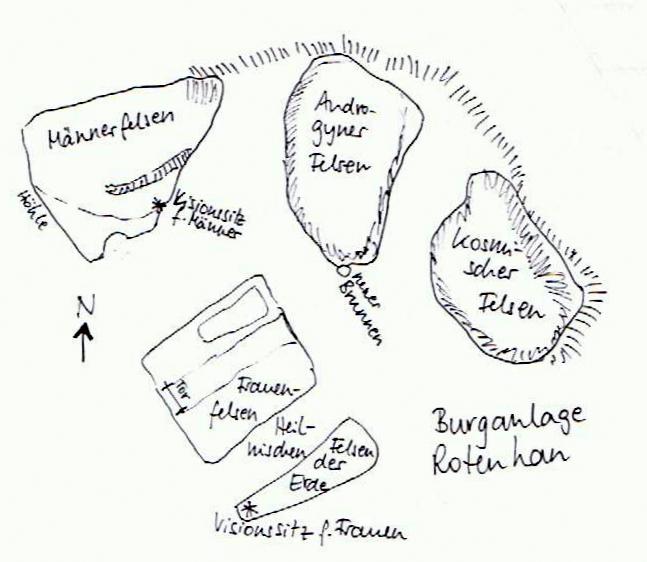 Männerfelsen
Höhle
Visionssitz
f. Männer
Andro-
gyner
Felsen
neuer
Brunnen
Kosmi-
scher
Felsen
N
Tor
Frauen-
felsen
Heil-
nischen
Felsen
der
Erde
Visionssitz f. Frauen
Burganlage
Rotenhan